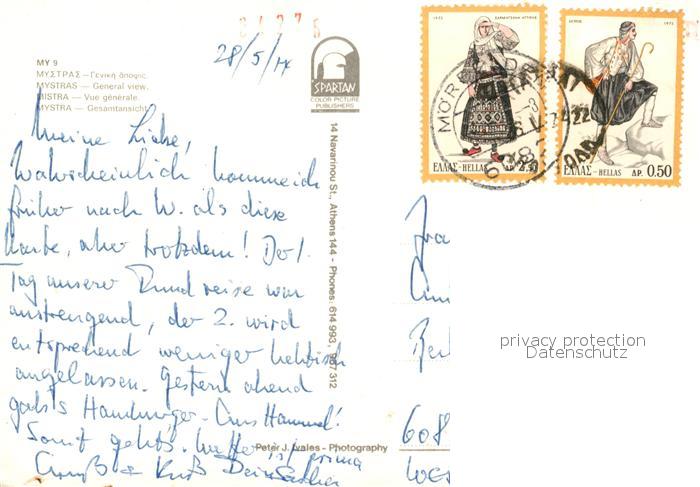 24275
28/5/74
MY 9
ΜΥΣΤΡΑΣ — Γενική άποψις.
MYSTRAS — General view.
MISTRA — Vue générale.
MYSTRA — Gesamtansicht
SPARTAN
COLOR PICTURE
PUBLISHERS
14 Navarinou St., Athens 144 - Phones: 614 993, 967 312
Meine Liebe,
Wahrscheinlich komme ich
früher nach W. als diese
Karte, aber trotzdem! Der 1.
Tag unserer Rundreise war
anstrengend, der 2. wird
entsprechend weniger hektisch
angelassen. Gestern abend
gab's Hamburger. Aus Hammel!
Sonst geht's. Wetter ist prima
Gruß + Kuß Dein
Peter J. Ivales - Photography
1972
ΕΛΛΑΣ-HELLAS ΔΡ. 2,50
1972
ΕΛΛΑΣ-HELLAS ΔΡ. 0.50
608
privacy protection
Datenschutz